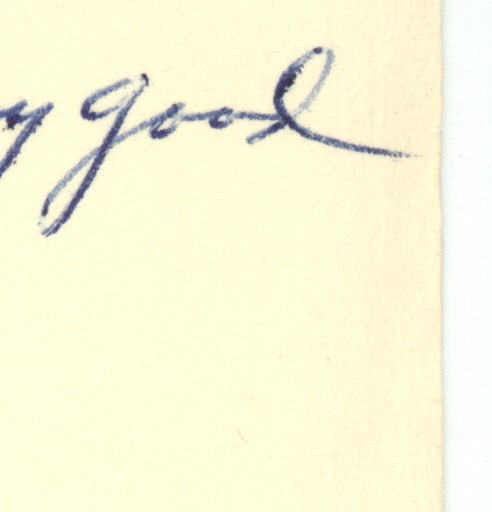 y good